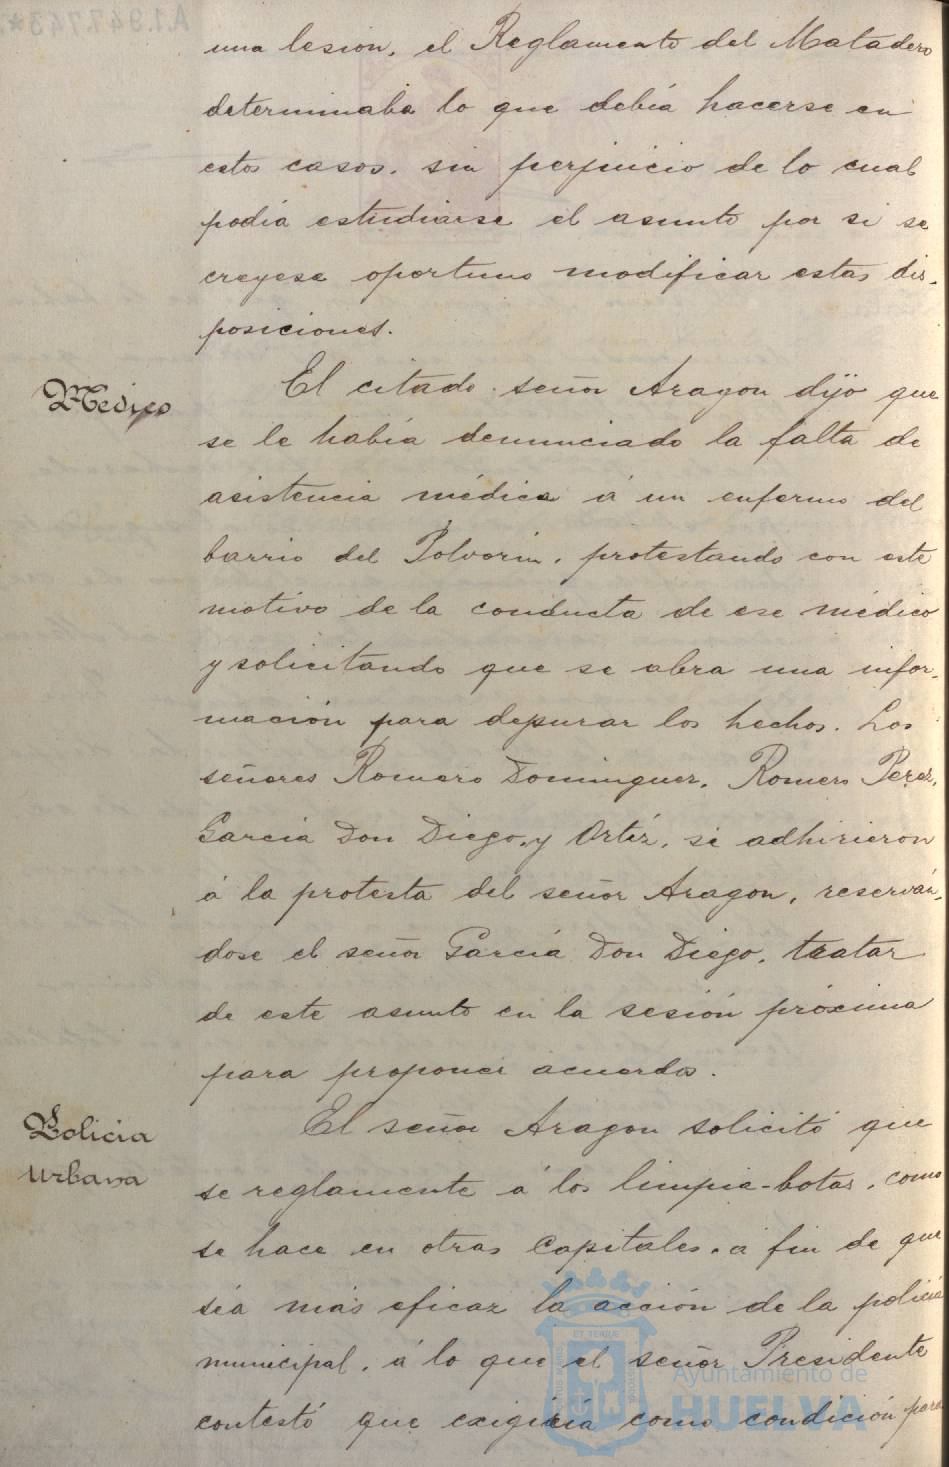 una lesion, el Reglamento del Matadero
determinaba lo que debía hacerse en
estos casos, sin perjuicio de lo cual
podía estudiarse el asunto por si se
creyese oportuno modificar estas dis-
posiciones.
Médico
El citado señor Aragon dijo que
se le había denunciado la falta de
asistencia médica á un enfermo del
barrio del Polvorin, protestando con este
motivo de la conducta de ese médico
y solicitando que se abra una infor-
mación para depurar los hechos. Los
señores Romero Dominguez, Romero Perez,
García Don Diego, y Ortíz, se adhirieron
á la protesta del señor Aragon, reserván-
dose el señor García Don Diego, tratar
de este asunto en la sesión próxima
para proponer acuerdo.
Policia
Urbana
El señor Aragon solicitó que
se reglamente á los limpia-botas, como
se hace en otras Capitales, a fin de que
sea más eficaz la acción de la policia
municipal, á lo que el señor Presidente
contestó que exigiría como condición para
Ayuntamiento de
HUELVA